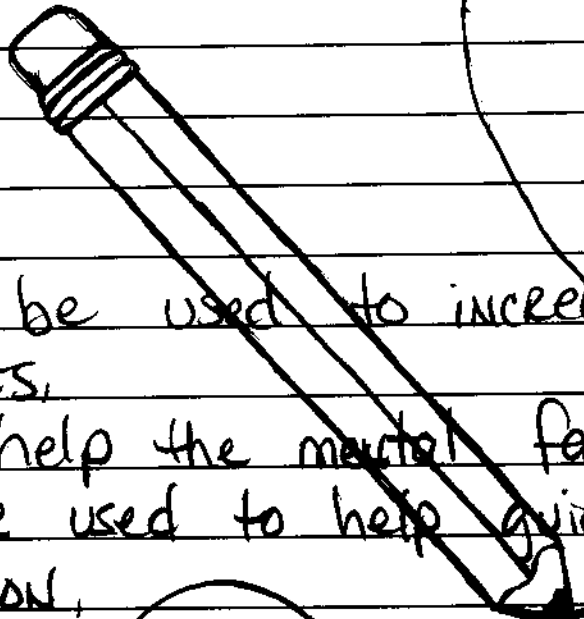 be used to incre
es,
help the mental fa
e used to help gui
on,